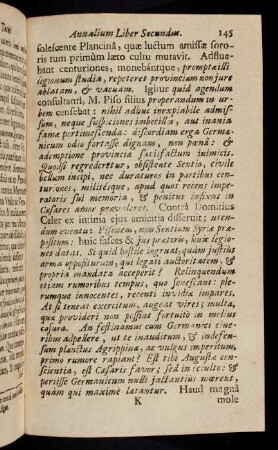 Annalium Liber Secundus. 145
solescente Plancinâ, quæ luctum amissæ soro-
ris tum primùm læto cultu mutavit. Adflue-
bant centuriones, monebántque, prompta illi
legionum studia, repeteret provinciam non jure
ablatam, & vacuam. Igitur quid agendum
consultanti, M. Piso filius properandum in ur-
bem censebat: nihil adhuc inexpiabile admis-
sum, neque suspiciones imbecillas, aut inania
famæ pertimescenda: discordiam erga Germa-
nicum odio fortasse dignam, non pœnâ: &
ademptione provincia satisfactum inimicis.
Quodsi regrederetur, obsistente Sentio, civile
bellum incipi, nec duraturos in partibus centu-
riones, militésque, apud quos recens impe-
ratoris sui memoria, & penitus infixus in
Cæsares amor prævaleret. Contrà Domitius
Celer ex intima ejus amicitia disseruit; uten-
dum eventu: Pisonem, non Sentium Syriæ præ-
positum: huic fasces & jus prætoris, huic legio-
nes datas. Si quid hostile ingruat, quàm justiùs
arma oppositurum, qui legati auctoritatem, &
propria mandata acceperit? Relinquendum
etiam rumoribus tempus, quo senescant: ple-
rumque innocentes, recenti invidiæ impares.
At si teneat exercitum, augeat vires; multa,
quæ provideri non possint fortuitò in melius
casura. An festinamus cum Germanici cine-
ribus adpellere, ut te inauditum, & indefen-
sum planctus Agrippinæ, ac vulgus imperitum,
primo rumore rapiant? Est tibi Augustæ con-
scientia, est Cæsaris favor; sed in occulto: &
periisse Germanicum nulli jactantiùs mœrent,
quàm qui maximè lætantur. Haud magnâ
K mole